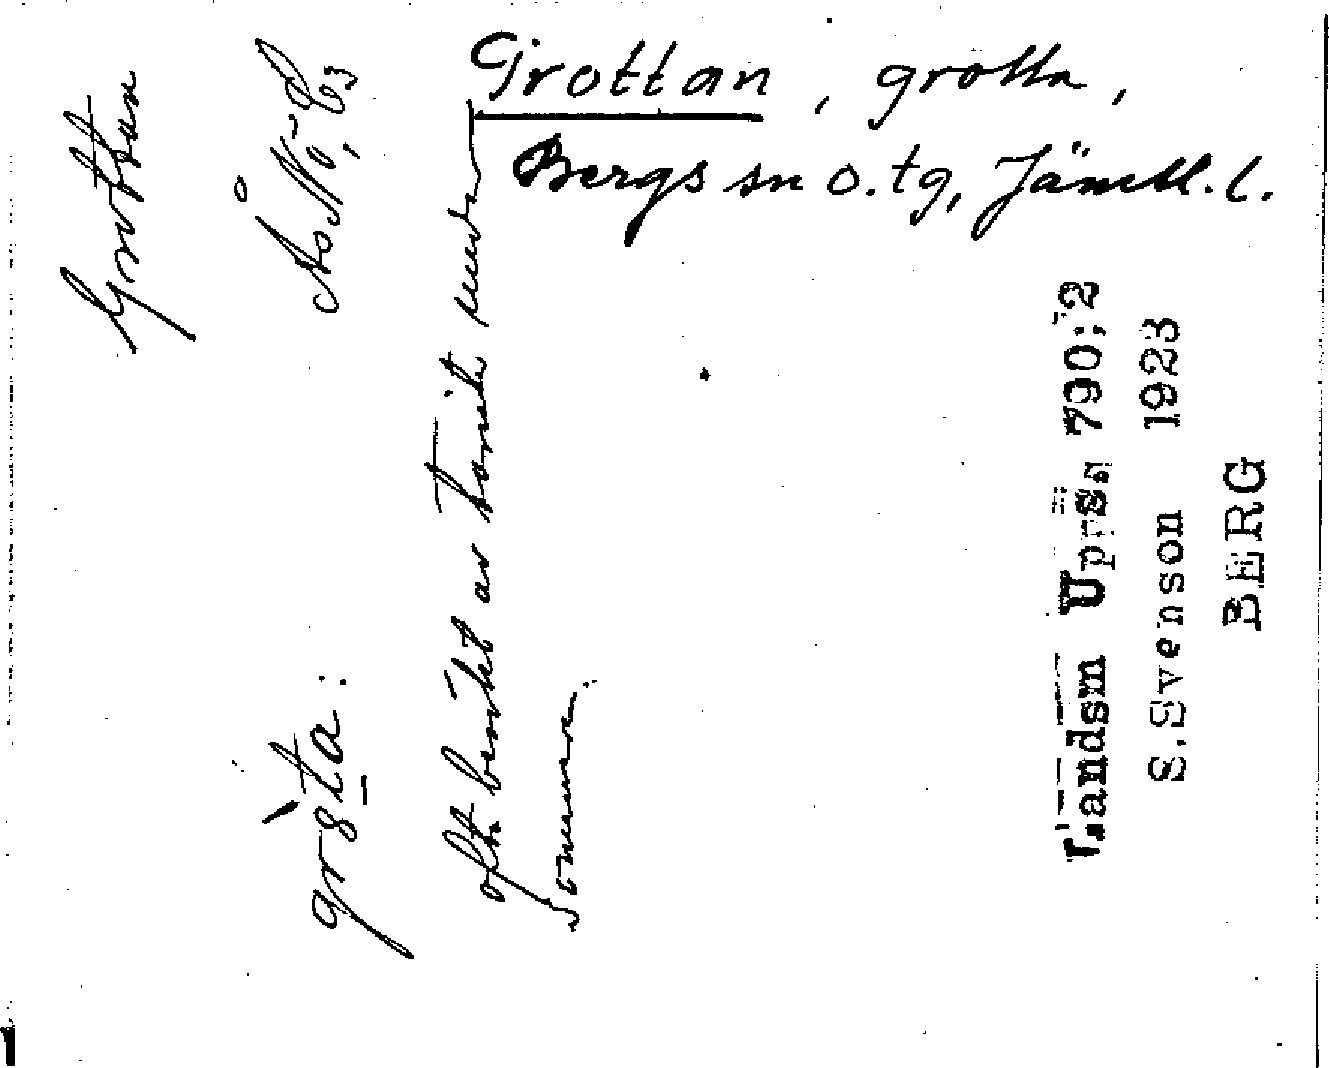 Grottan, grotta,
Bergs sn o. tg, Jämtl. l.
Grottan
oft benökt av turister under
sommaren.
Landsm Upps. 790:2
S.Svenson 1923
BERG